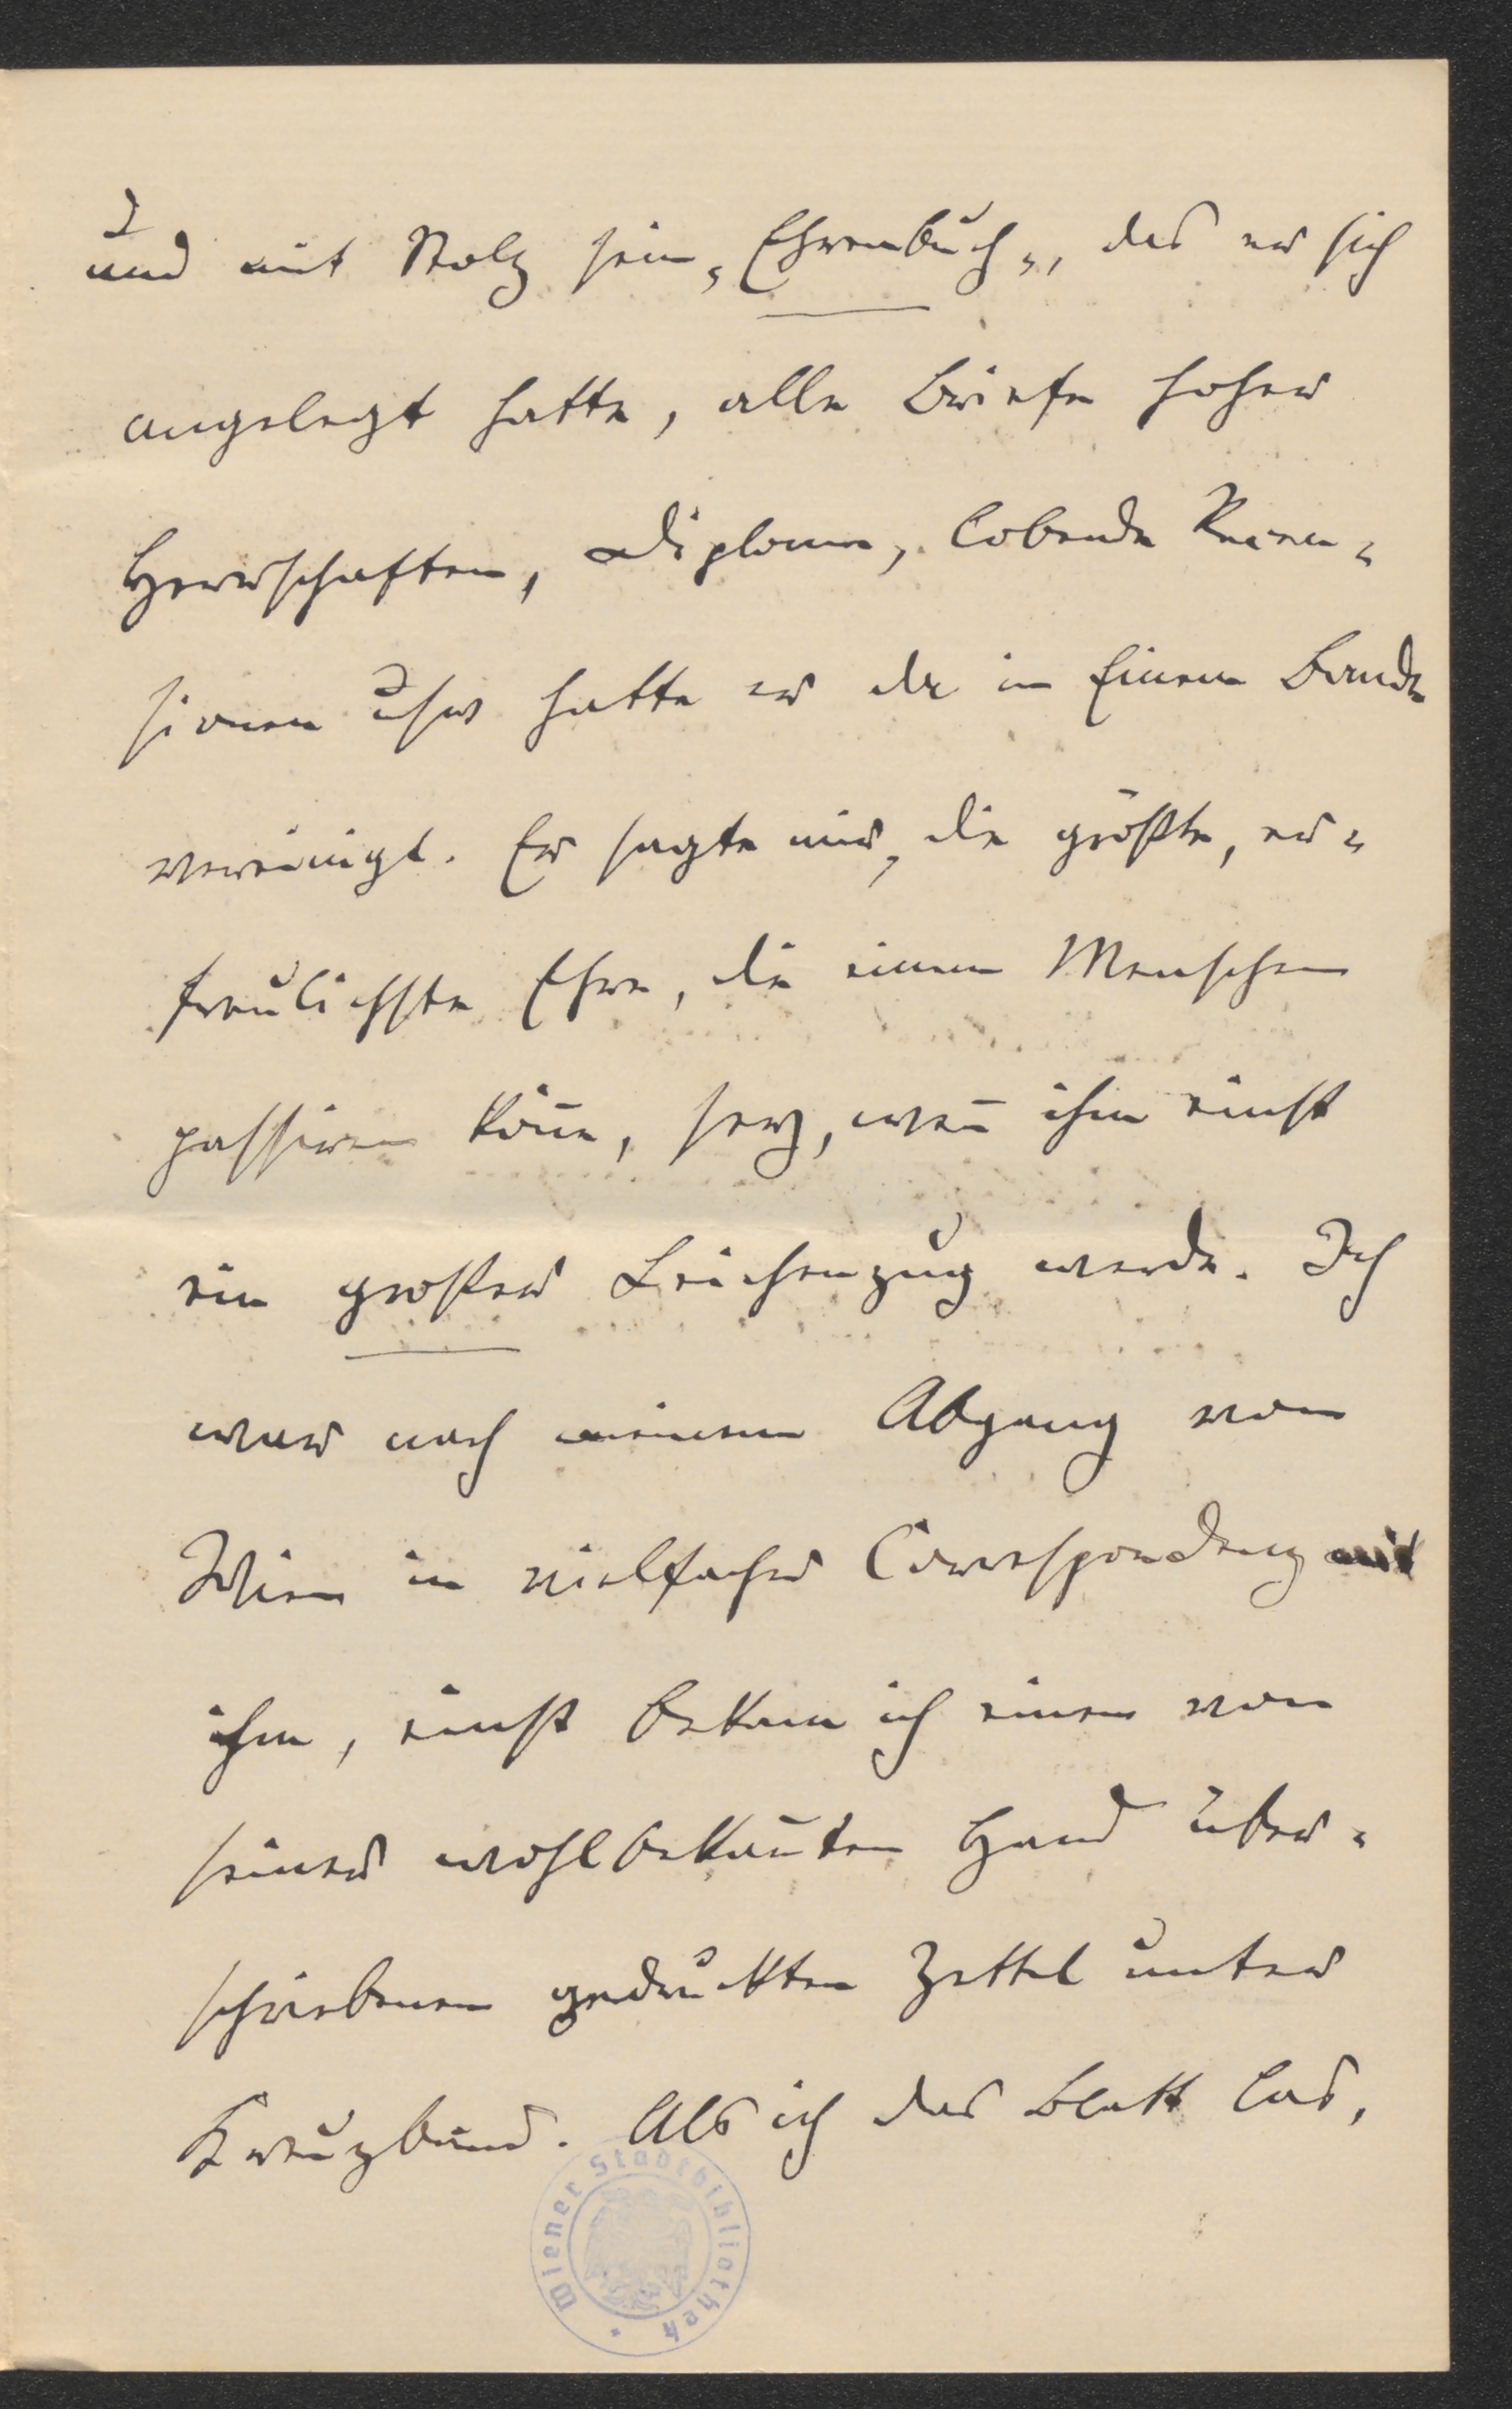 und mit Stolz sein „Ehrenbuch„, das er sich
angelegt hatte, alle Briefe hoher
Herrschaften, Diplome, lobende Recen-
sionen usw hatte er da in Einem Bande
vereinigt. Er sagte mir, die größte, er-
freulichste Ehre, die einem Menschen
passiren köne, sey, wen̄ ihm einst
ein großer Leichenzug werde. Ich
war nach meinem Abgang von
Wien in vielfacher Correspondenz mit
ihm, einst bekam ich einen von
seiner wohlbekan̄ten Hand über-
schriebenen gedruckten Zettel unter
Kreuzband. Als ich das Blatt las,
Wiener Stadtbibliothek